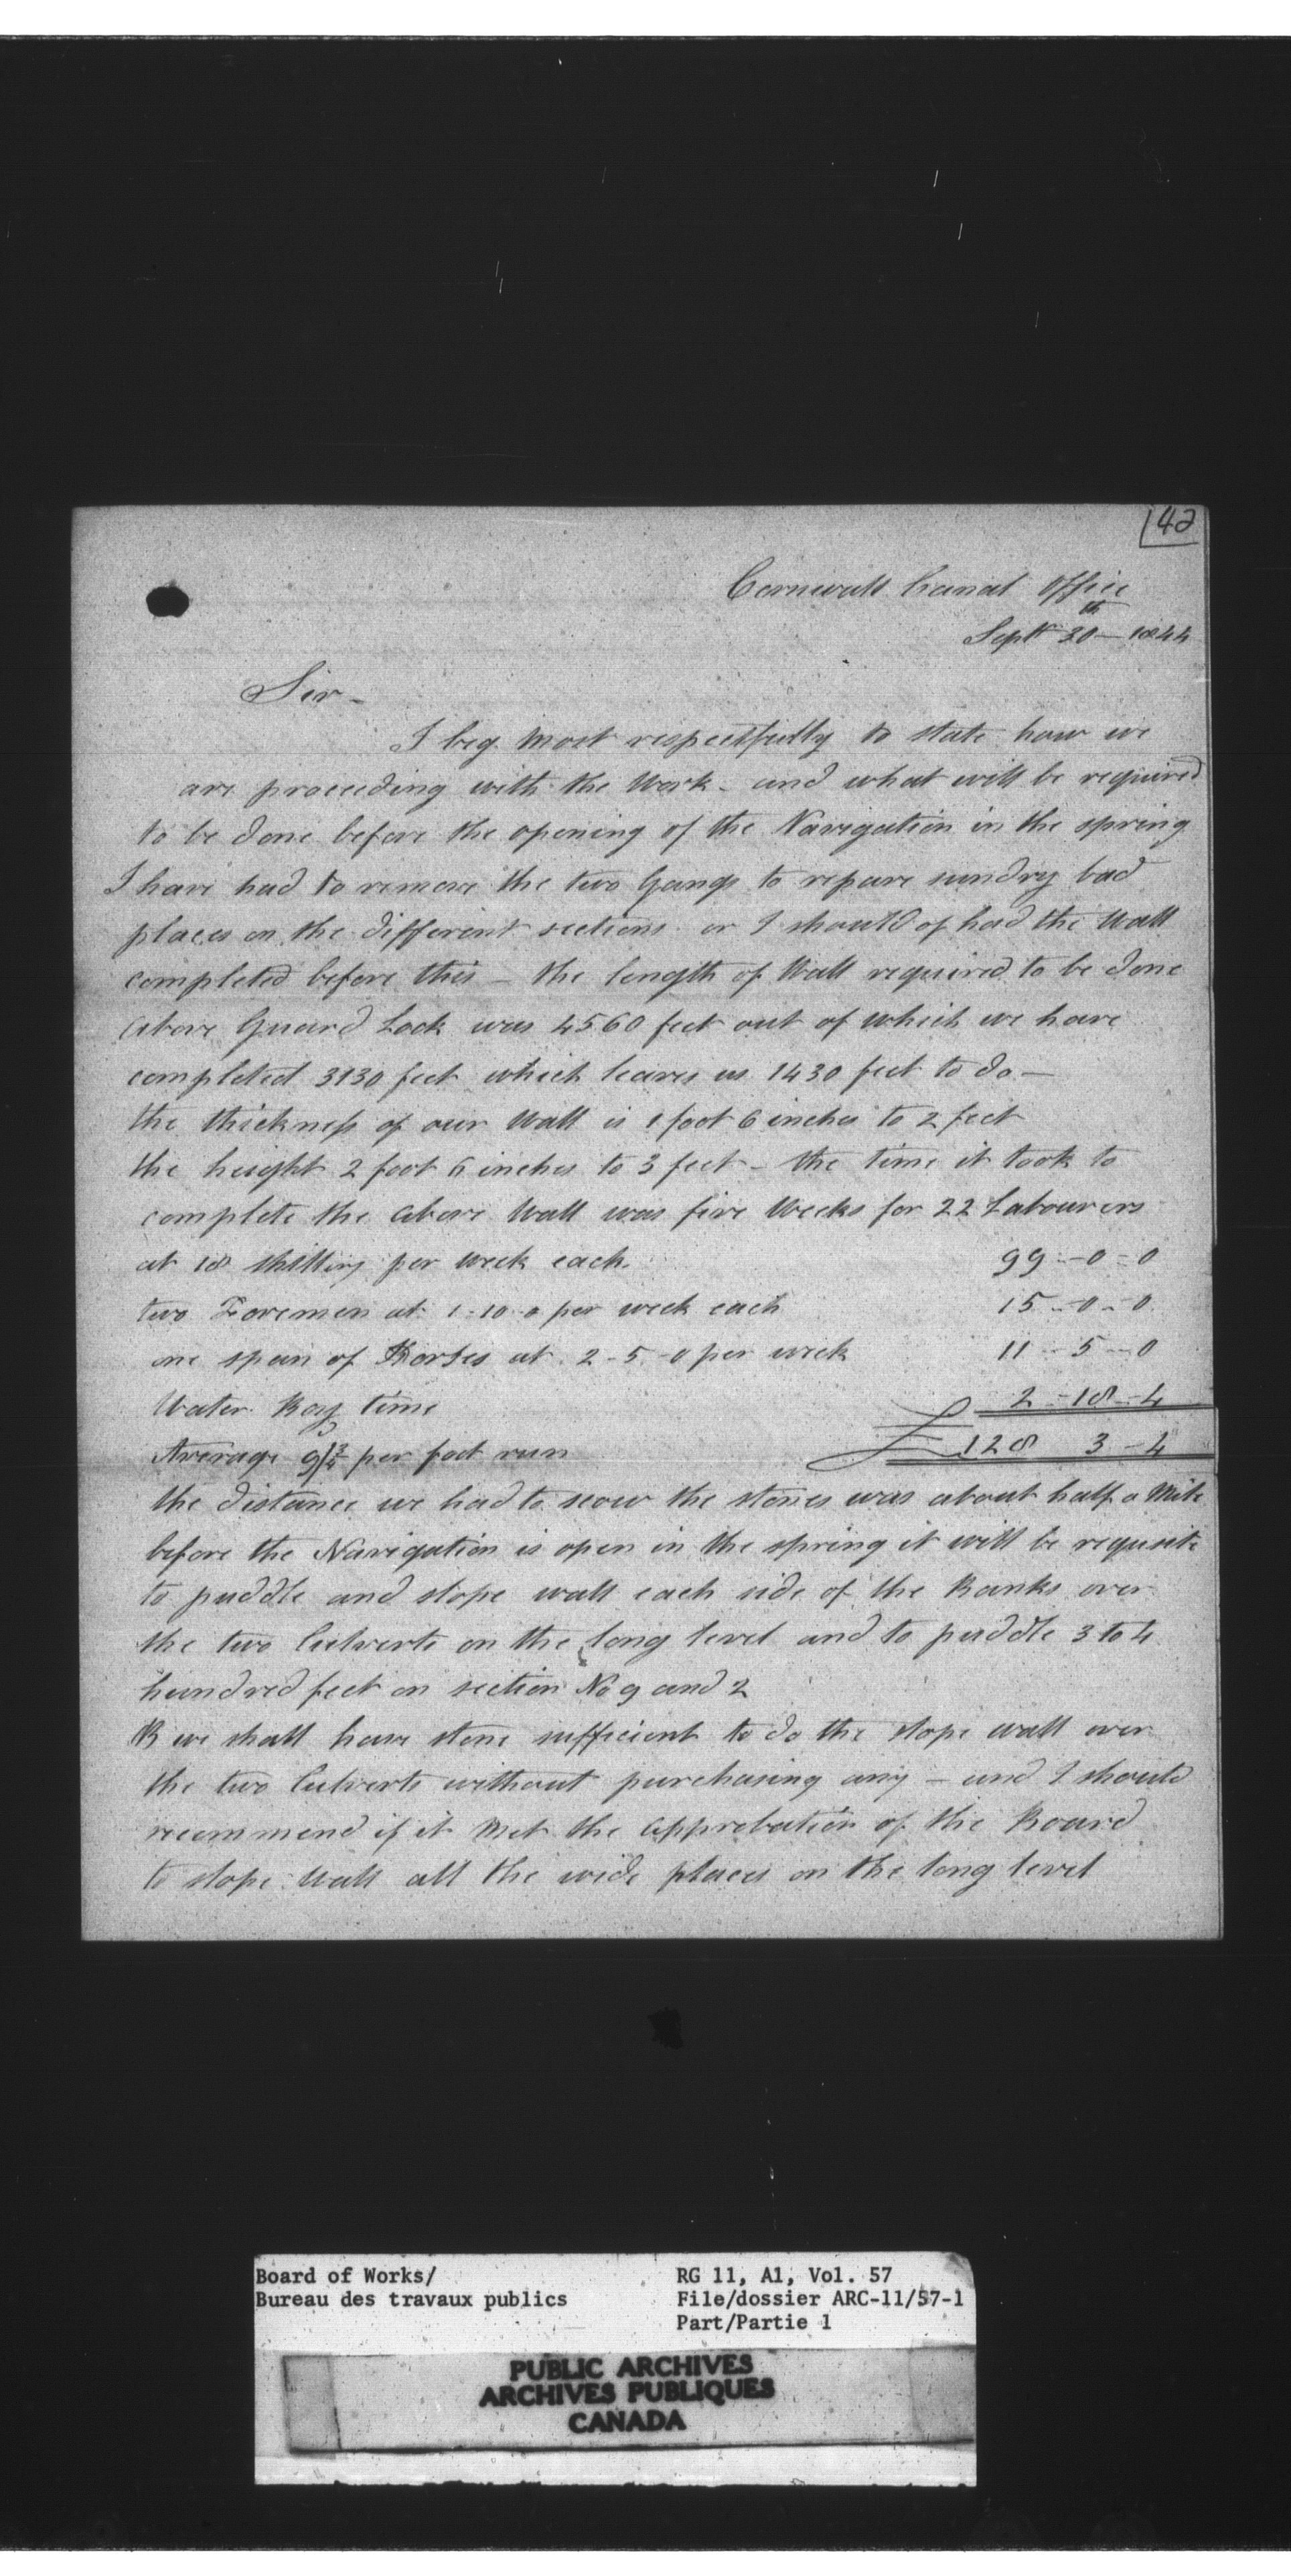 142
Cornwall Canal Office
Sept 30th 1844
Sir -
I beg most respectfully to state how we
are proceeding with the Work - and what will be required
to be done before the opening of the Navigation in the spring
I have had to remove the two Gangs to repare sundry bad
places on the different sections or I should of had the Wall
completed before this - the length of Wall required to be done
above Guard Lock was 4560 feet out of which we have
completed 3130 feet which leaves us 1430 feet to do -
the thickness of our Wall is 1 foot 6 inches to 2 feet
the height 2 foot 6 inches to 3 feet - the time it took to
complete the above Wall was five Weeks for 22 Labourers
at 18 shilling per week each. 99 - 0 - 0
two Foremen at 1-10-0 per week each 15 - 0 - 0
one span of Horses at 2-5-0 per week 11 - 5 - 0
Water Boy time 2 - 18 - 4
Average 9/¾ per foot run £ 128 3 - 4
the distance we had to scow the stones was about half a Mile
before the Navigation is open in the spring it will be requisite
to puddle and slope wall each side of the Banks over
the two Culverts on the long level and to puddle 3 to 4
hundred feet on section No 9 and 2
B we shall have stone sufficient to do the slope wall over
the two Culverts without purchasing any - and I should
recommend if it Met the Approbation of the Board
to slope Wall all the wide places on the long level
Board of Works/
Bureau des travaux publics
RG 11, A1, Vol. 57
File/dossier ARC-11/57-1
Part/Partie 1
PUBLIC ARCHIVES
ARCHIVES PUBLIQUES
CANADA